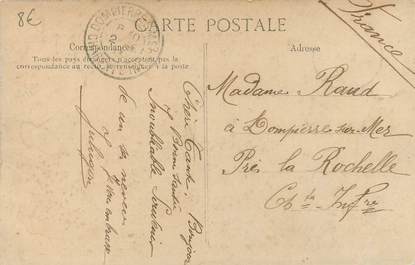 8€
CARTE POSTALE
Correspondance
Adresse
Tous les pays étrangers n'acceptent pas la
correspondance au recto, se renseigner à la poste
DOMPIERRE
France
Chère Tante. Bonjour
Bonne Santé
Inoubliable Souvenir
de un neveu
Madame Raud
à Dompierre sur-Mer
Près la Rochelle
Ch-te Infre